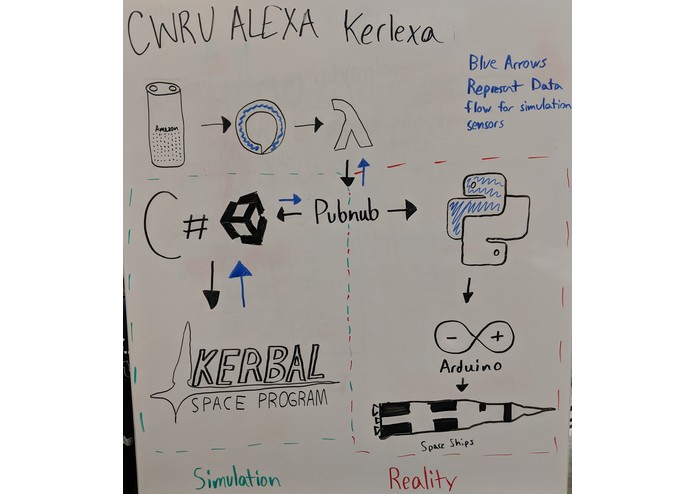 CWRU ALEXA Kerlexa
Blue Arrows
Represent Data
flow for simulation
sensors
Amazon
λ
C#
Pubnub
- +
Arduino
KERBAL
SPACE PROGRAM
Space Ships
Simulation
Reality